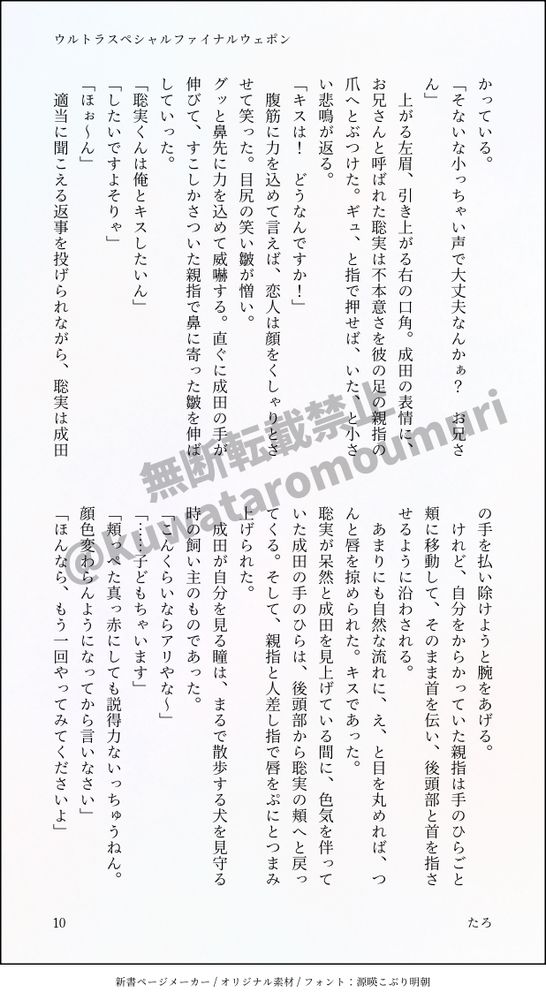 ウルトラスペシャルファイナルウェポン
かっている。
「そないな小っちゃい声で大丈夫なんかぁ？　お兄さ
ん」
　上がる左眉、引き上がる右の口角。成田の表情に、
お兄さんと呼ばれた聡実は不本意さを彼の足の親指の
爪へとぶつけた。ギュ、と指で押せば、いた、と小さ
い悲鳴が返る。
「キスは！　どうなんですか！」
　腹筋に力を込めて言えば、恋人は顔をくしゃりとさ
せて笑った。目尻の笑い皺が憎い。
グッと鼻先に力を込めて威嚇する。直ぐに成田の手が
伸びて、すこしかさついた親指で鼻に寄った皺を伸ば
していった。
「聡実くんは俺とキスしたいん」
「したいですよそりゃ」
「ほぉ〜ん」
　適当に聞こえる返事を投げられながら、聡実は成田
の手を払い除けようと腕をあげる。
　けれど、自分をからかっていた親指は手のひらごと
頬に移動して、そのまま首を伝い、後頭部と首を指さ
せるように沿わされる。
　あまりにも自然な流れに、え、と目を丸めれば、つ
んと唇を掠められた。キスであった。
聡実が呆然と成田を見上げている間に、色気を伴って
いた成田の手のひらは、後頭部から聡実の頬へと戻っ
てくる。そして、親指と人差し指で唇をぷにとつまみ
上げられた。
　成田が自分を見る瞳は、まるで散歩する犬を見守る
時の飼い主のものであった。
「こんくらいならアリやな〜」
「……子どもちゃいます」
「頬っぺた真っ赤にしても説得力ないっちゅうねん。
顔色変わらんようになってから言いなさい」
「ほんなら、もう一回やってみてくださいよ」
無断転載禁止
@kuwataromoumuri
10
たろ
新書ページメーカー / オリジナル素材 / フォント：源暎こぶり明朝